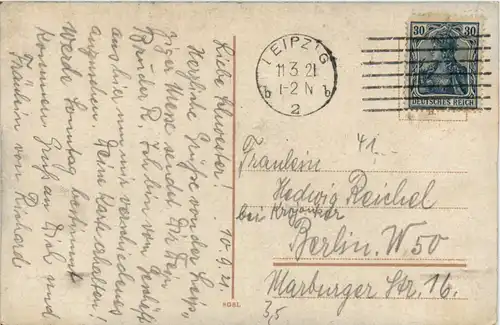 Liebe Schwester! 10.9.21.
Herzliche Grüße von der Leip-
ziger Messe sendet Dir Dein
Bruder R. Ich bin von Geschäft
aus hier um mir verschiedenes
anzusehen. Deine Karte erhalten!
Werde Sonntag bestimmt
kommen. Gruß an Dich und
Fräulein von Reinhard
LEIPZIG
11.3.21
1-2 N
b b
2
30 30
DEUTSCHES REICH
41.–
Fräulein
Hedwig Reichel
bei Krojanker
Berlin. W 50
Marburger Str. 16.
3,5